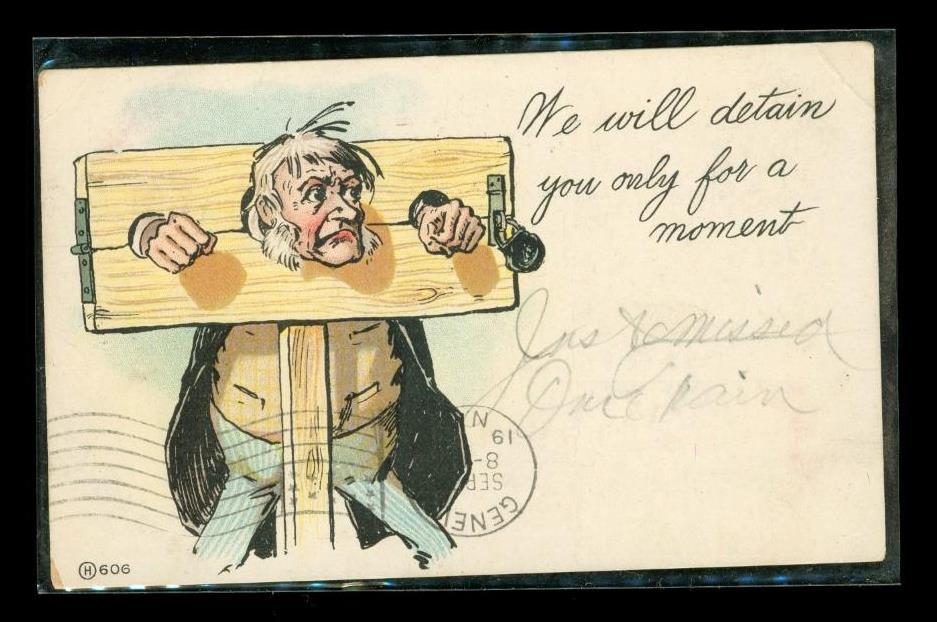 We will detain
you only for a
moment
Just missed
One train
GENE
SEP
8-
19
N
Ⓗ606